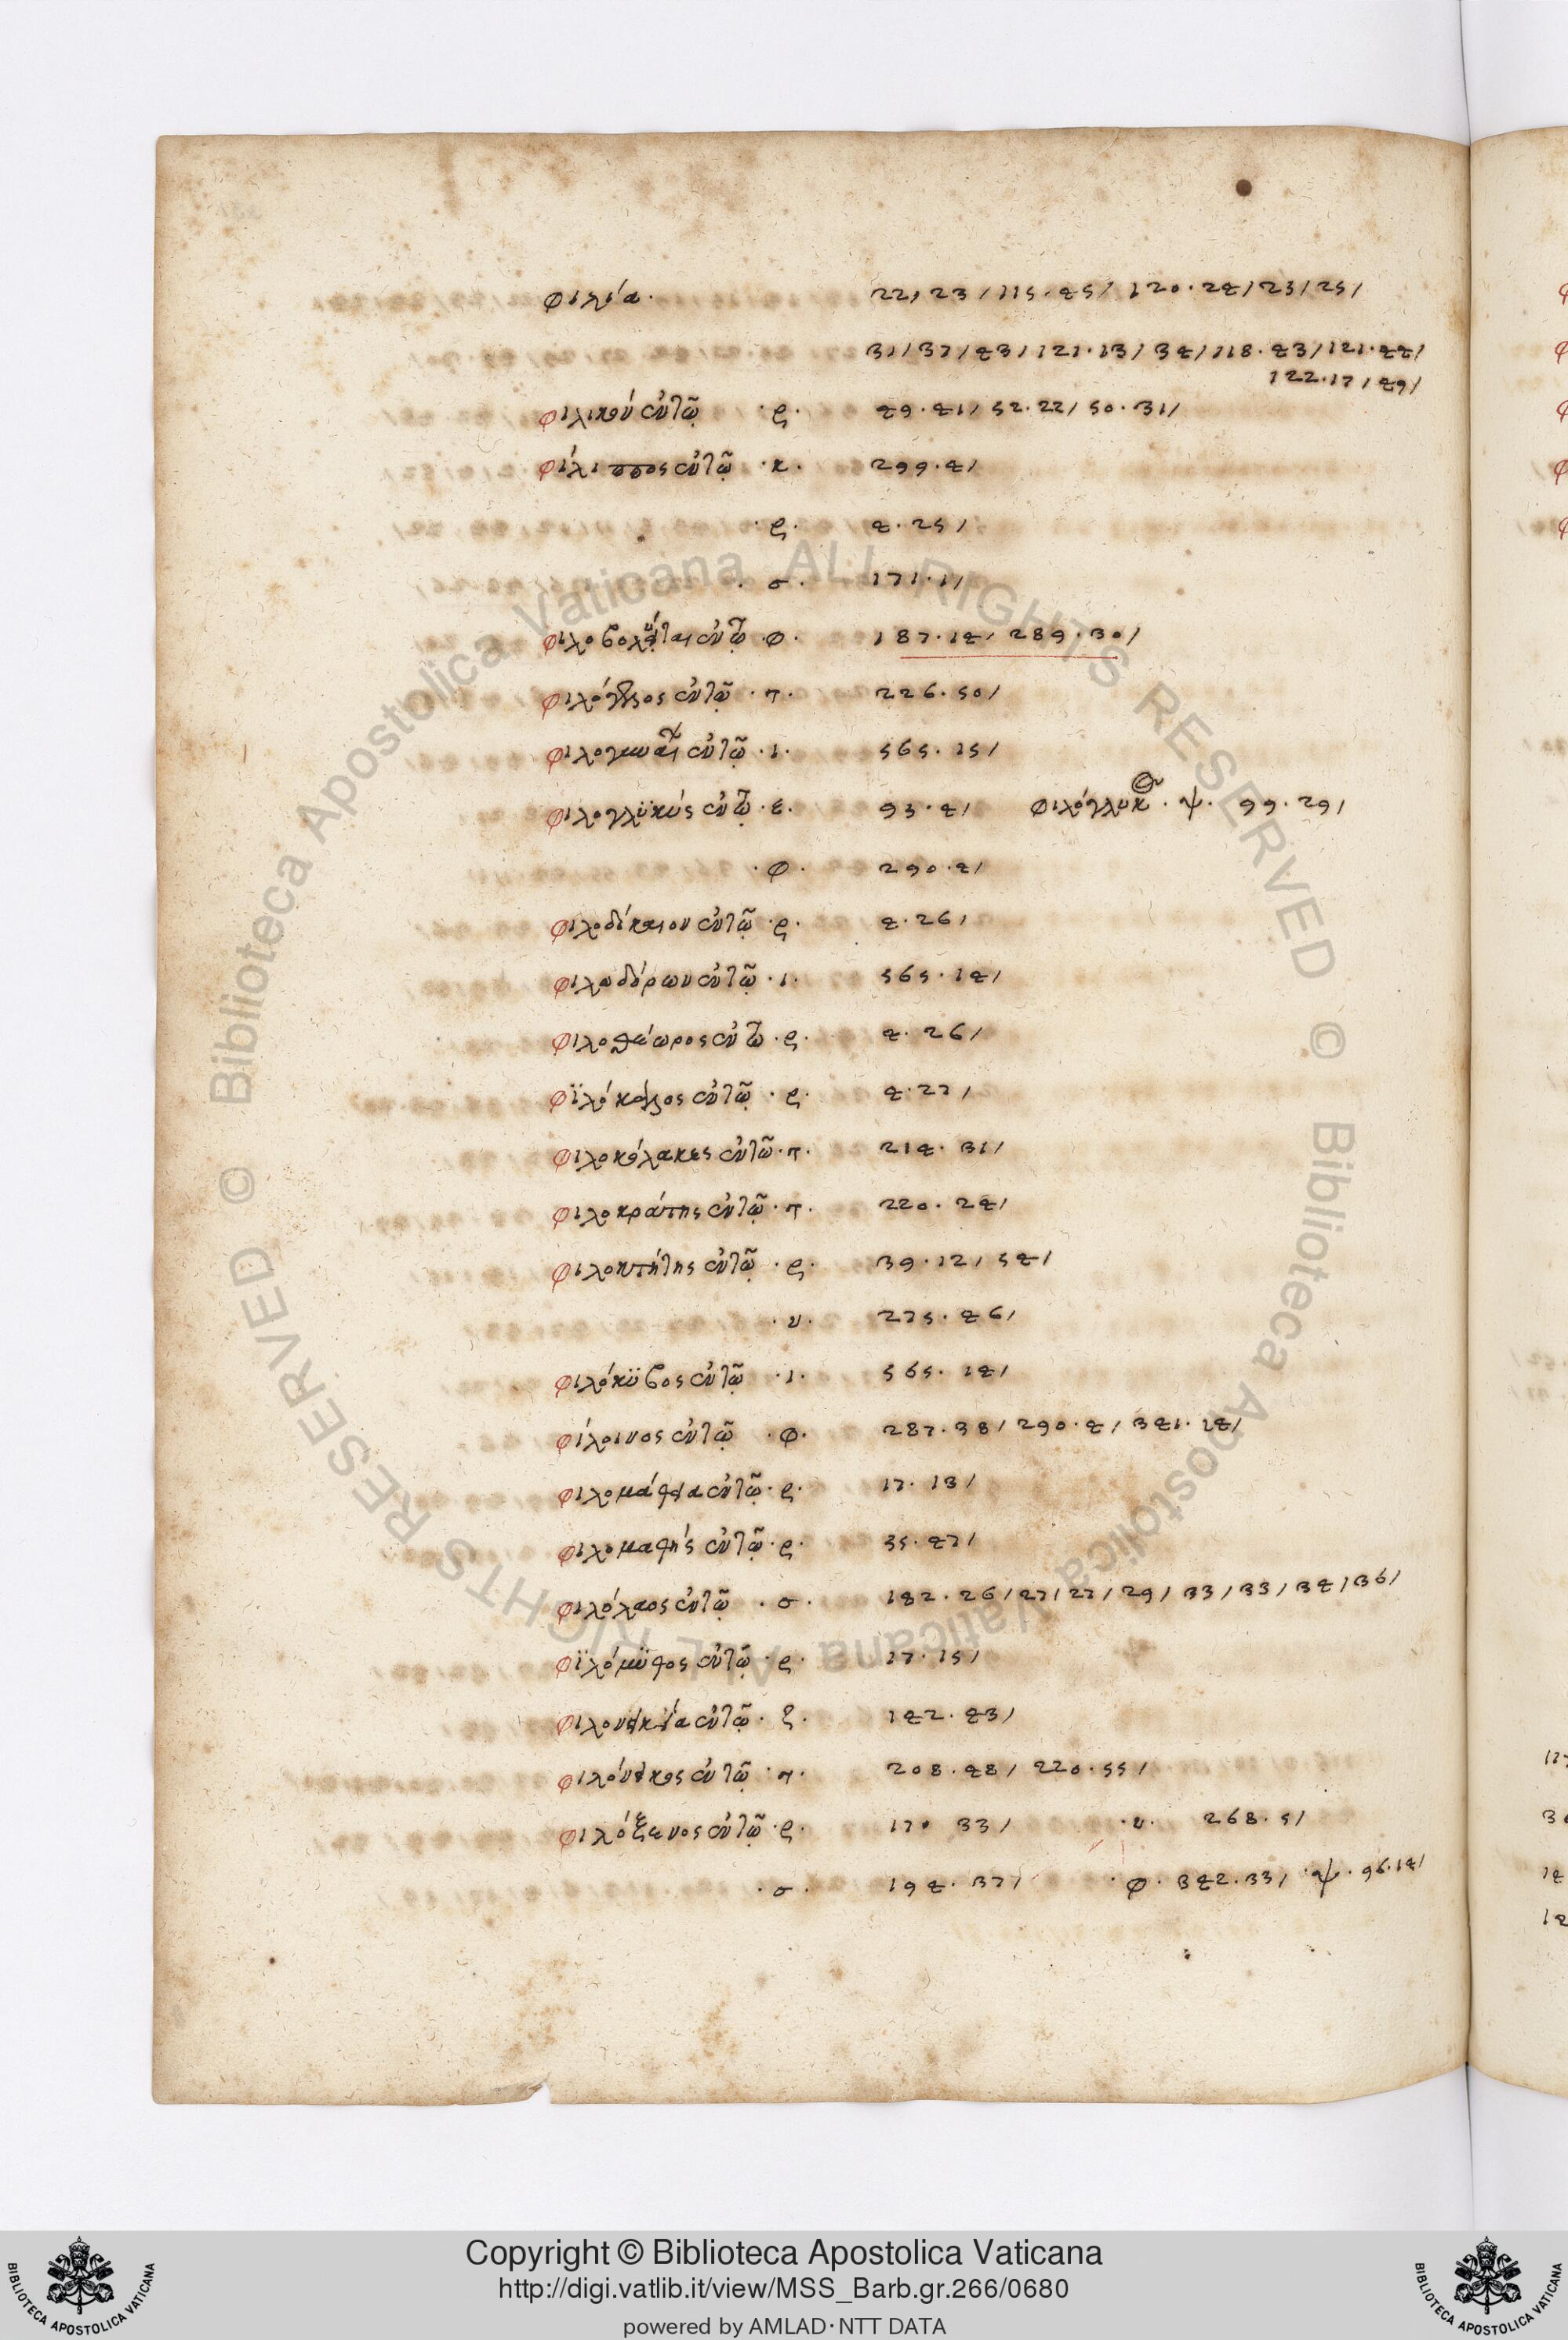 φιλία · 22/23/115·45/120·24/23/25/
31/37/43/121·13/34/118·43/121·44/
122·17/49/
φιλικὸν ἐν τῶ ·ρ· 49·41/52·22/50·31/
φίλιππος ἐν τῶ ·κ· 299·4/
·ρ· 4·25/
·σ· 171·1/
ἐν τῶ ·φ· 187·14/289·30/
ἐν τῶ ·π· 226·50/
ἐν τῶ ·ι· 565·15/
φιλογλϋκύς ἐν τῶ ·ε· 93·4/ φιλόγλυκ ·ψ· 99·29/
·φ· 290·4/
φιλοδίκαιον ἐν τῶ ·ρ· 4·26/
φιλοδώρων ἐν τῶ ·ι· 565·14/
φιλοθέωρος ἐν τῶ ·ρ· 4·26/
φϊλόκαλος ἐν τῶ ·ρ· 4·27/
φιλοκόλακες ἐν τῶ ·π· 214·31/
φιλοκράτης ἐν τῶ ·π· 220·24/
φιλοκτήτης ἐν τῶ ·ρ· 39·12/54/
·υ· 275·46/
φιλόκϋβος ἐν τῶ ·ι· 565·14/
φίλοινος ἐν τῶ ·φ· 287·38/290·4/341·14/
φιλομάθεια ἐν τῶ ·ρ· 17·13/
φιλομαθής ἐν τῶ ·ρ· 35·47/
φιλόλαος ἐν τῶ ·σ· 182·26/27/27/29/33/33/34/36/
φϊλόμϋθος ἐν τῶ ·ρ· 17·15/
φιλονεικεία ἐν τῶ ·ζ· 142·43/
φιλόνεικος ἐν τῶ ·π· 208·48/220·55/
φιλόξενος ἐν τῶ ·ρ· 17· 33/ ·υ· 268·5/
·σ· 194·37/ ·φ· 342·33/ ·ψ· 96·14/
Copyright © Biblioteca Apostolica Vaticana
http://digi.vatlib.it/view/MSS_Barb.gr.266/0680
powered by AMLAD·NTT DATA